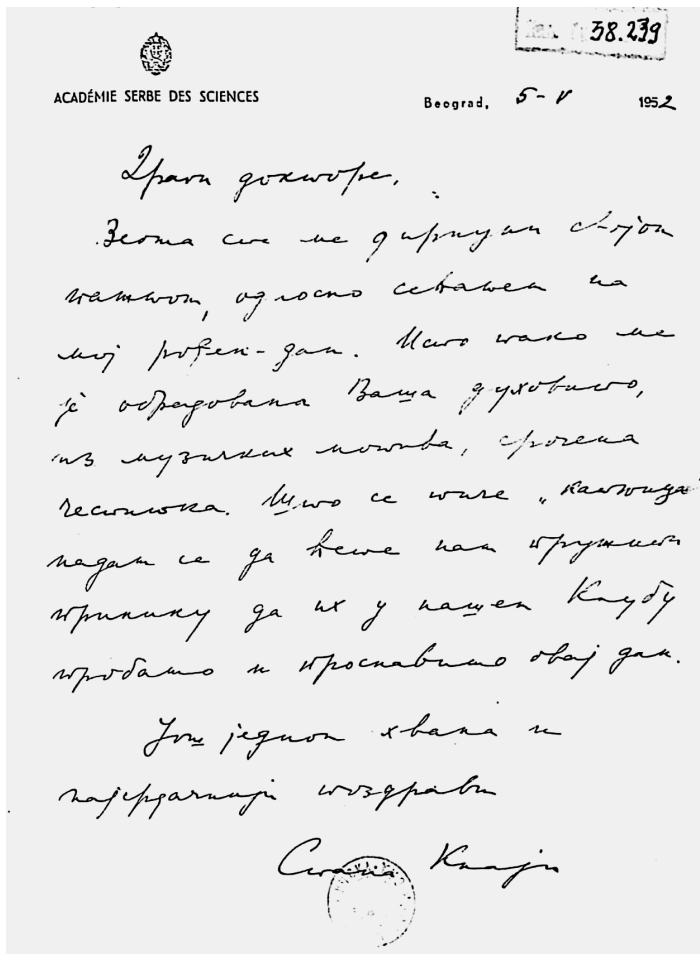 58.239
ACADÉMIE SERBE DES SCIENCES
Beograd, 5-V 1952
Драги докторе,
Веома сте ме дирнули својом
пажњом, односно сећањем на
мој рођен-дан. Исто тако ме
је обрадовала Ваша духовито,
из музичких мотива, срочена
честитка. Што се тиче „
надам се да ћете нам пружити
прилику да их у нашем Клубу
пробамо и прославимо овај дан.
Још једном хвала и
најсрдачнији поздрави
Стана